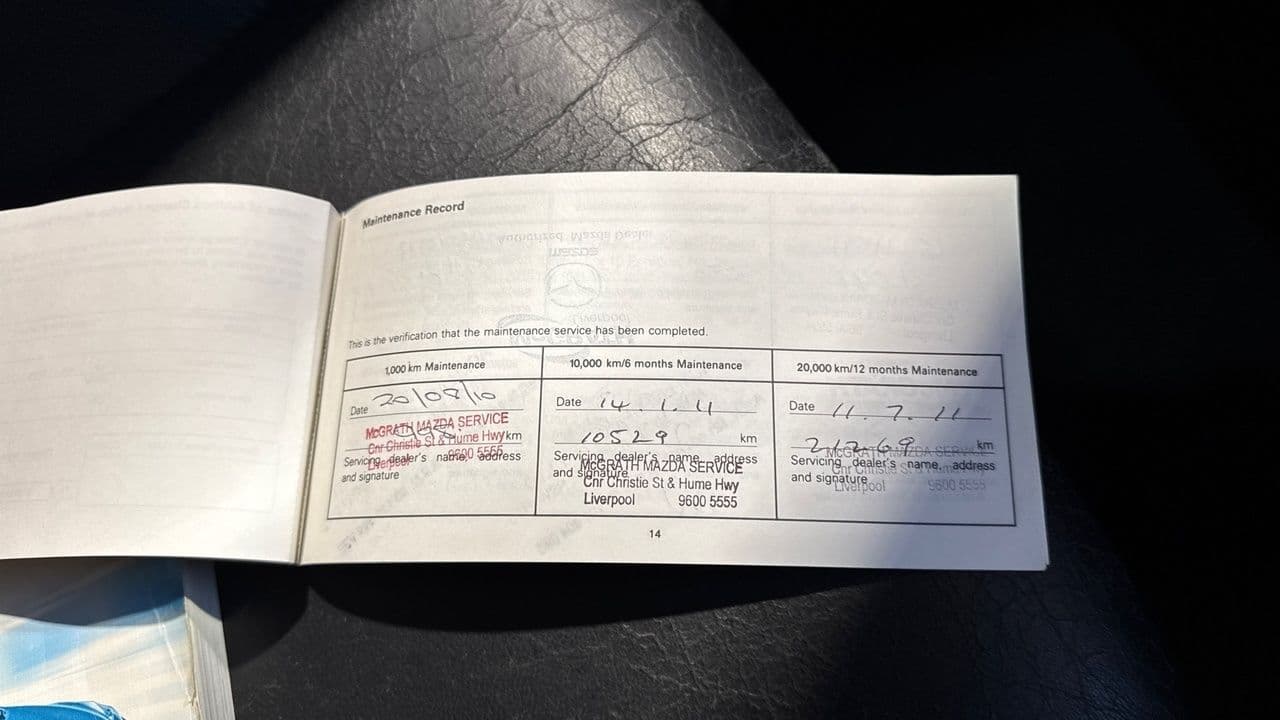 Maintenance Record
This is the verification that the maintenance service has been completed.
1,000 km Maintenance
Date 20/08/10
km
McGRATH MAZDA SERVICE
Cnr Christie St & Hume Hwy
Liverpool 9600 5555
Servicing dealer's name, address
and signature
10,000 km/6 months Maintenance
Date 14.1.11
10529 km
Servicing dealer's name, address
and signature
McGRATH MAZDA SERVICE
Cnr Christie St & Hume Hwy
Liverpool 9600 5555
20,000 km/12 months Maintenance
Date 11.7.11
21269 km
Servicing dealer's name, address
and signature
McGRATH MAZDA SERVICE
Cnr Christie St & Hume Hwy
Liverpool 9600 5555
14